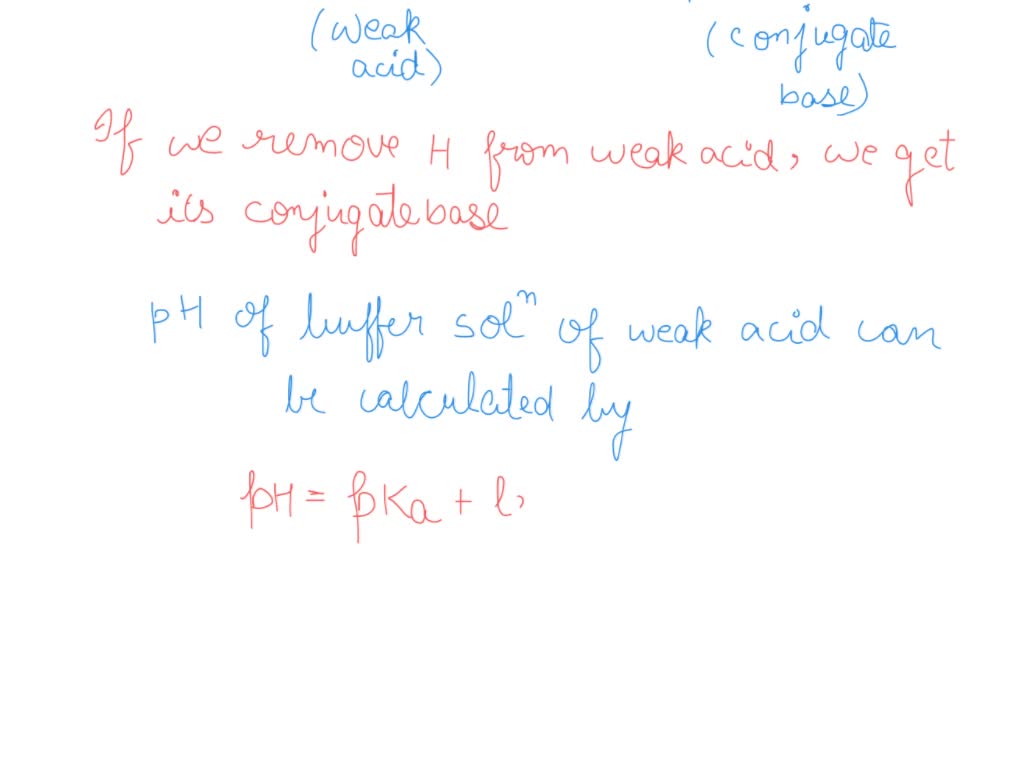 (weak (conjugate
acid) base)
If we remove H from weak acid, we get
its conjugate base
pH of buffer solⁿ of weak acid can
be calculated by
pH = pKa + l